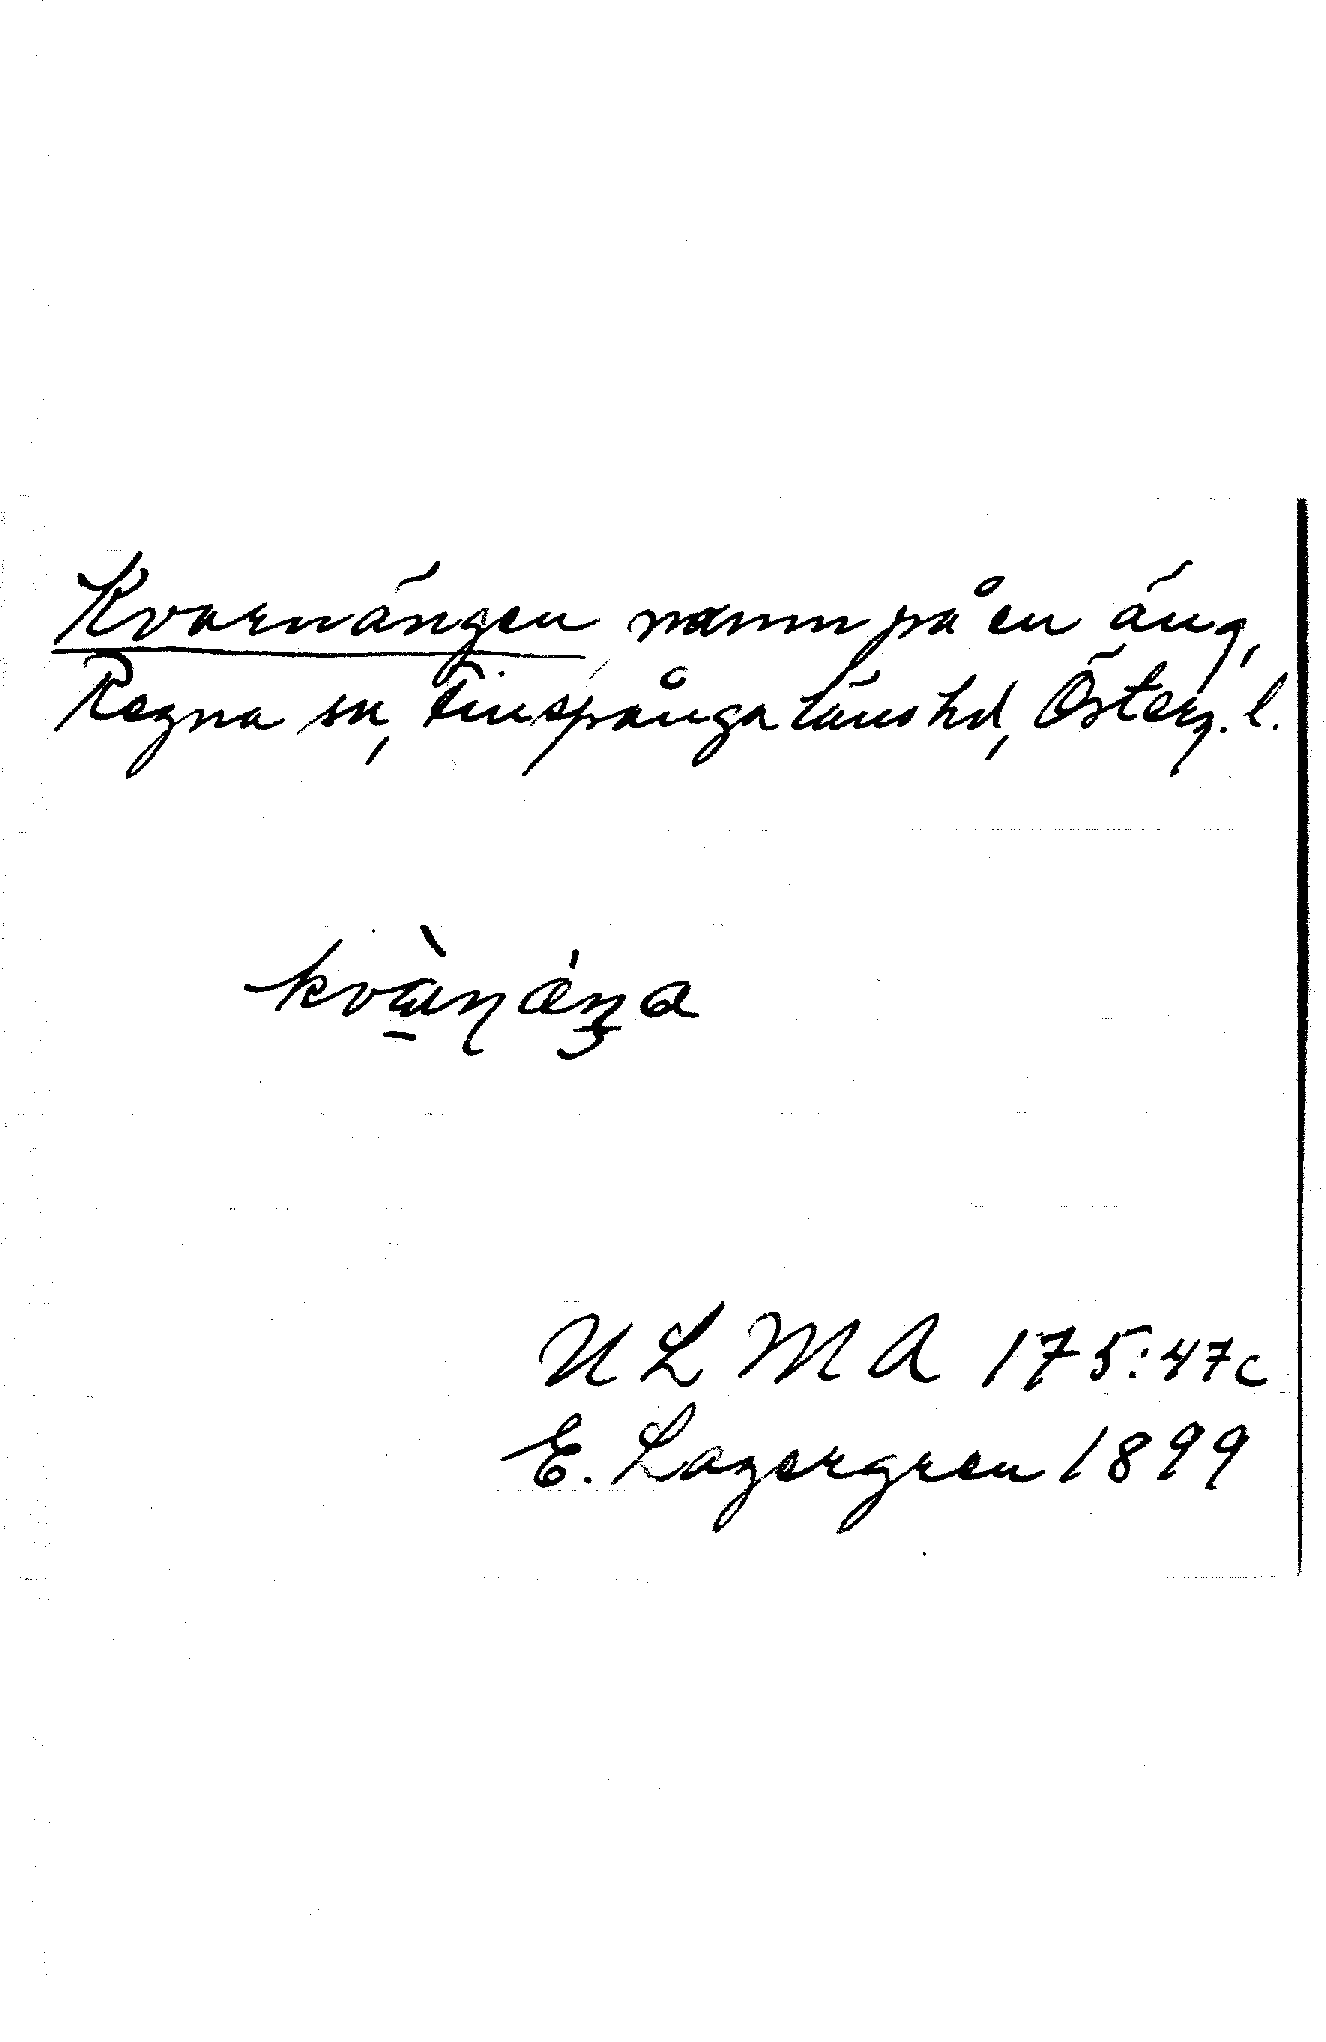 Kvarnängen namn på en äng,
Regna sn, Finspånga läns hd, Österg. l.
ULMA 175:47c
E. Lagergren 1899